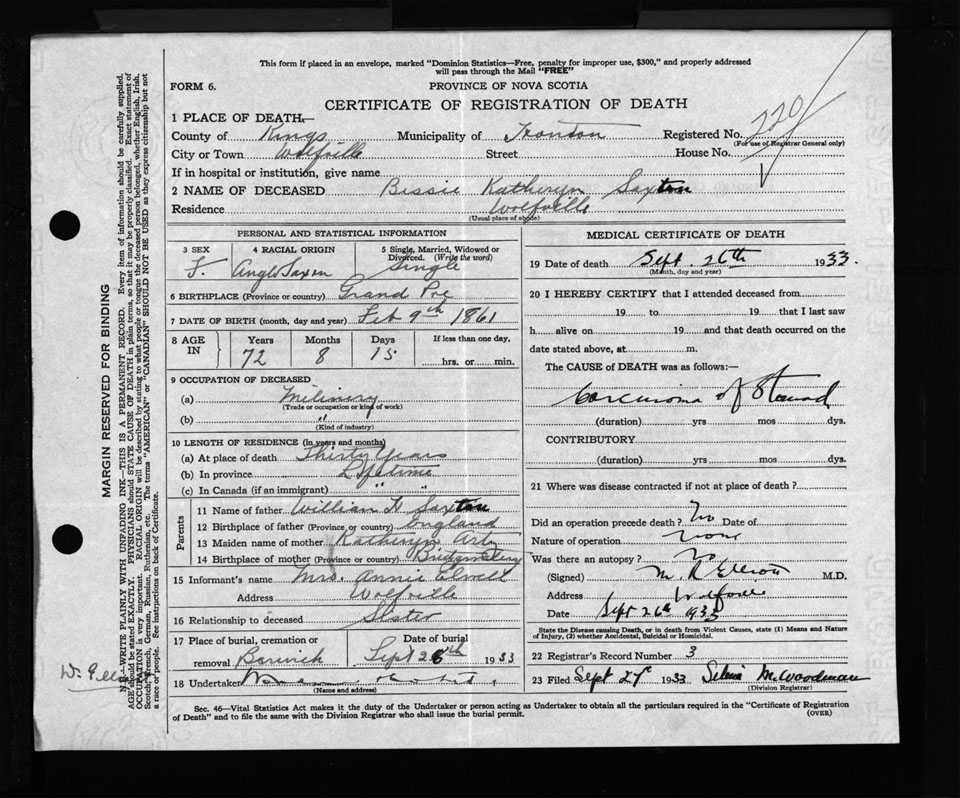 This form if placed in an envelope, marked "Dominion Statistics—Free, penalty for improper use, $300," and properly addressed
will pass through the Mail "FREE"
FORM 6.
PROVINCE OF NOVA SCOTIA
CERTIFICATE OF REGISTRATION OF DEATH
1 PLACE OF DEATH—
County of Kings Municipality of Registered No. 220
(For use of Registrar General only)
City or Town Wolfville Street House No.
If in hospital or institution, give name
2 NAME OF DECEASED Bissie Katheryn Saxton
Residence Wolfville
(Usual place of abode)
PERSONAL AND STATISTICAL INFORMATION
3 SEX F.
4 RACIAL ORIGIN Anglo Saxon
5 Single, Married, Widowed or Divorced. (Write the word) Single
6 BIRTHPLACE (Province or country) Grand Pre
7 DATE OF BIRTH (month, day and year) Feb 9th 1861
8 AGE IN Years 72 Months 8 Days 15 If less than one day, hrs. or min.
9 OCCUPATION OF DECEASED
(a) Milinery
(Trade or occupation or kind of work)
(b) "
(Kind of industry)
10 LENGTH OF RESIDENCE (in years and months)
(a) At place of death Thirty Years
(b) In province Lifetime
(c) In Canada (if an immigrant) " "
Parents
11 Name of father William Saxton
12 Birthplace of father (Province or country) England
13 Maiden name of mother Katheryn
14 Birthplace of mother (Province or country)
15 Informant's name Mrs. Annie
Address Wolfville
16 Relationship to deceased Sister
17 Place of burial, cremation or removal Berwick Date of burial Sept 28th 1933
18 Undertaker
(Name and address)
MEDICAL CERTIFICATE OF DEATH
19 Date of death Sept. 26th 1933.
(Month, day and year)
20 I HEREBY CERTIFY that I attended deceased from
19 to 19 that I last saw
h alive on 19 and that death occurred on
date stated above, at m.
The CAUSE of DEATH was as follows:—
Carcinoma of
(duration) yrs mos dys.
CONTRIBUTORY
(duration) yrs mos dys.
21 Where was disease contracted if not at place of death?
Did an operation precede death? No Date of
Nature of operation none
Was there an autopsy? no
(Signed) M. R Elliott M.D.
Address Wolfville
Date Sept 26th 1933
State the Disease causing Death, or in death from Violent Causes, state (1) Means and Nature
of Injury, (2) whether Accidental, Suicidal or Homicidal.
22 Registrar's Record Number 3
23 Filed Sept 27 1933 M. Woodman
(Division Registrar)
Sec. 46—Vital Statistics Act makes it the duty of the Undertaker or person acting as Undertaker to obtain all the particulars required in the "Certificate of Registration
of Death" and to file the same with the Division Registrar who shall issue the burial permit.
(OVER)
MARGIN RESERVED FOR BINDING
N.B.—WRITE PLAINLY WITH UNFADING INK—THIS IS A PERMANENT RECORD. Every item of information should be carefully supplied.
AGE should be stated EXACTLY. PHYSICIANS should STATE CAUSE OF DEATH in plain terms, so that it may be properly classified. Exact statement of
OCCUPATION is very important. RACIAL ORIGIN will be described by stating to what people or tongue the deceased person belonged, whether English, Irish,
Scotch, French, German, Russian, Ruthenian, etc. The terms "AMERICAN" or "CANADIAN" SHOULD NOT BE USED as they express citizenship but not
a race or people. See instructions on back of Certificate.